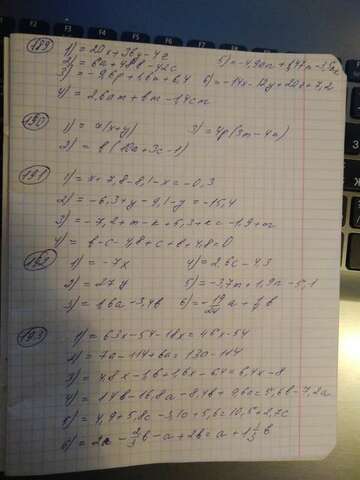 189
1) = 20x + 36y - 4z
2) = 6a + 48b - 42c
3) = -9,6p + 1,6a + 6,4
4) = 2,6am + bm - 1,4cm
6) = -14x - 12y + 20z + 7,2
190
1) = a(x+y)
2) = b(10a+3c-1)
3) = 4p(3m-4n)
191
1) = x + 7,8 - 8,1 - x = -0,3
2) = -6,3 + y - 9,1 - y = -15,4
3) = -7,2 + m - k + 5,3 + k = -1,9 + m
4) = b - c - 4,8 + c + b + 4,8 = 0
192
1) = -7x
2) = 27y
3) = 1,6a - 3,4b
4) = 2,6c - 43
5) = -3,7m + 1,9n - 5,1
193
1) = 63x - 54 - 18x = 45x - 54
2) = 7a - 114 + 6a = 13a - 114
3) = 4,8x - 1,6 + 1,6x - 6,4 = 6,4x - 8
4) = 14b - 16,8a - 8,4b + 9,6a = 5,6b - 7,2a
5) = 4,9 + 5,8c - 3,1c + 5,6 = 10,5 + 2,7c
6) = 2a - 2/3 b - a + 2b = a + 1 1/3 b